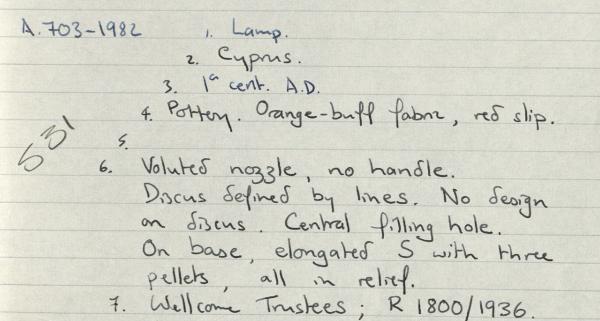 A.703-1982 1. Lamp.
2. Cyprus.
3. 1a cent. A.D.
4. Pottery. Orange-buff fabric, red slip.
531
5.
6. Voluted nozzle, no handle.
Discus defined by lines. No design
on discus. Central filling hole.
On base, elongated S with three
pellets, all in relief.
7. Wellcome Trustees; R 1800/1936.